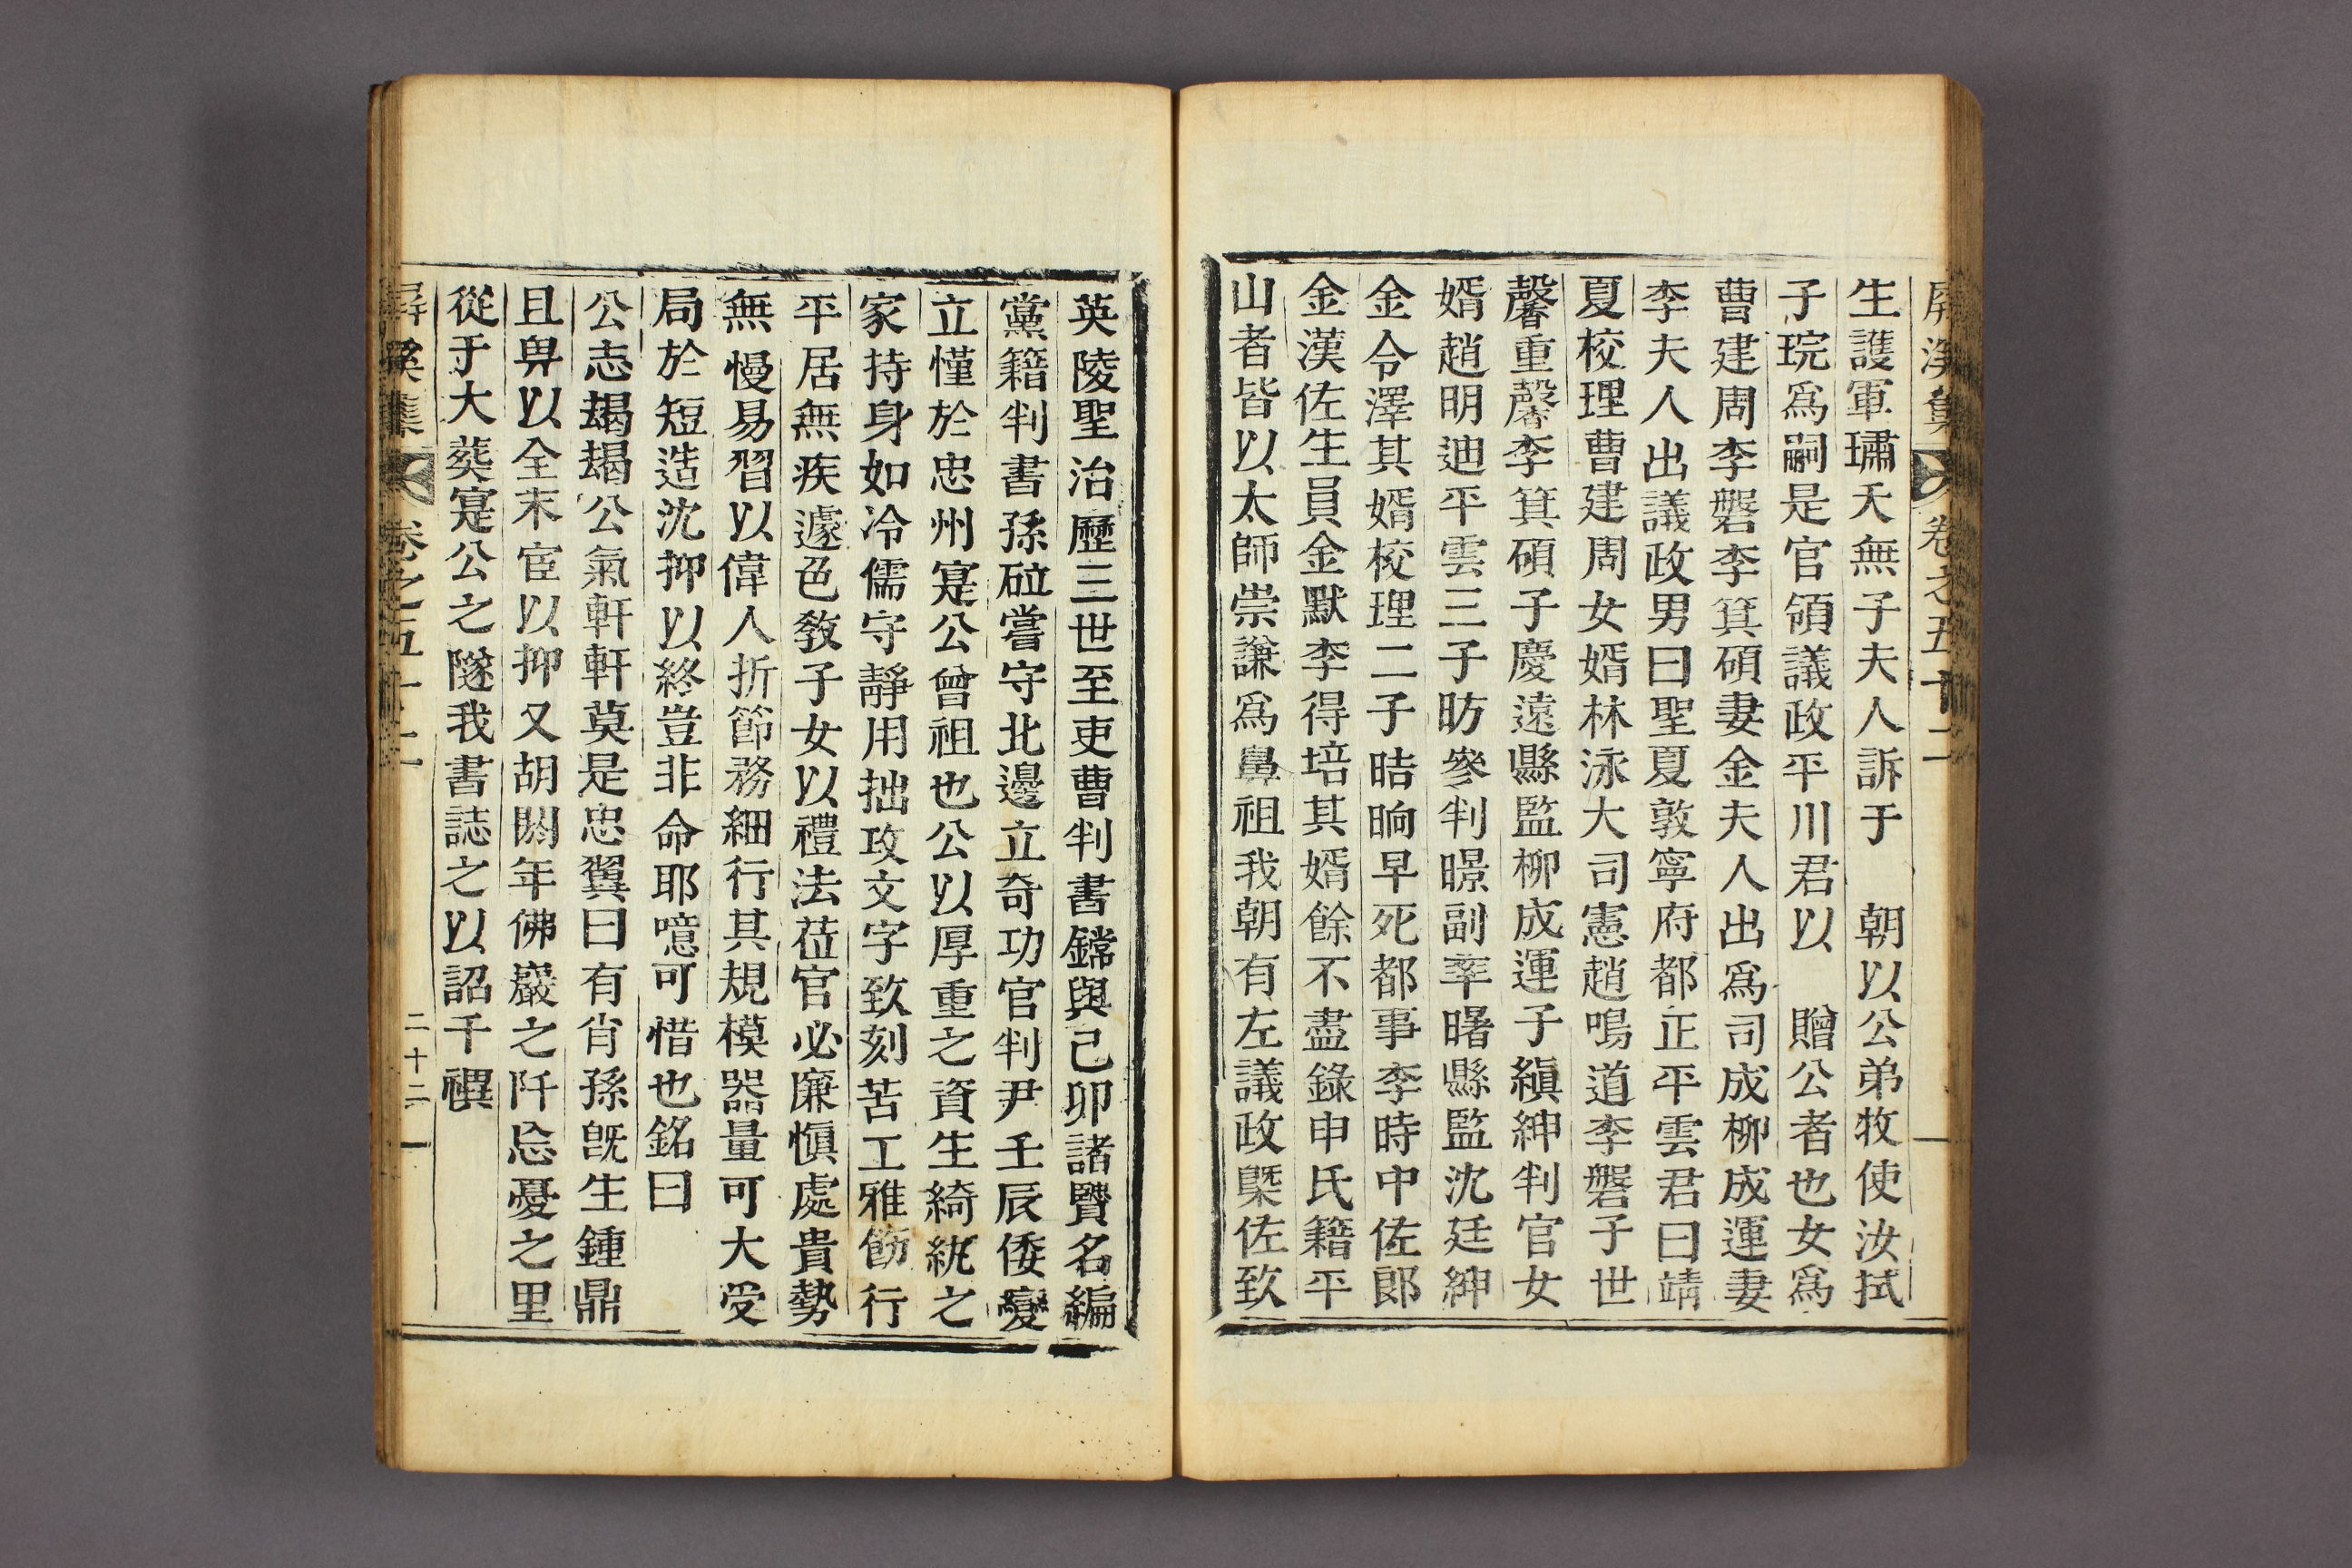 屛溪集 卷之五十二
生護軍璛夭無子夫人訴于 朝以公弟牧使汝拭
子琓爲嗣是官領議政平川君以 贈公者也女爲
曹建周李磐李箕碩妻金夫人出爲司成柳成運妻
李夫人出議政男曰聖夏敦寧府都正平雲君曰靖
夏校理曹建周女婿林泳大司憲趙鳴道李磐子世
馨重馨李箕碩子慶遠縣監柳成運子縝紳判官女
婿趙明迪平雲三子昉參判暻副率曙縣監沈廷紳
金令澤其婿校理二子晧晌早死都事李時中佐郞
金漢佐生員金默李得培其婿餘不盡錄申氏籍平
山者皆以太師崇謙爲鼻祖我朝有左議政槩佐致
英陵聖治歷三世至吏曹判書鏛與己卯諸賢名編
黨籍判書孫砬嘗守北邊立奇功官判尹壬辰倭變
立慬於忠州寔公曾祖也公以厚重之資生綺紈之
家持身如冷儒守靜用拙攻文字致刻苦工雅飭行
平居無疾遽色敎子女以禮法莅官必廉愼處貴勢
無慢易習以偉人折節務細行其規模器量可大受
局於短造沈抑以終豈非命耶噫可惜也銘曰
公志朅朅公氣軒軒莫是忠翼曰有肖孫旣生鍾鼎
且畀以全末宦以抑又胡閼年佛巖之阡忩憂之里
從于大葬寔公之隧我書誌之以詔千禩
屛溪集 卷之五十二 二十二